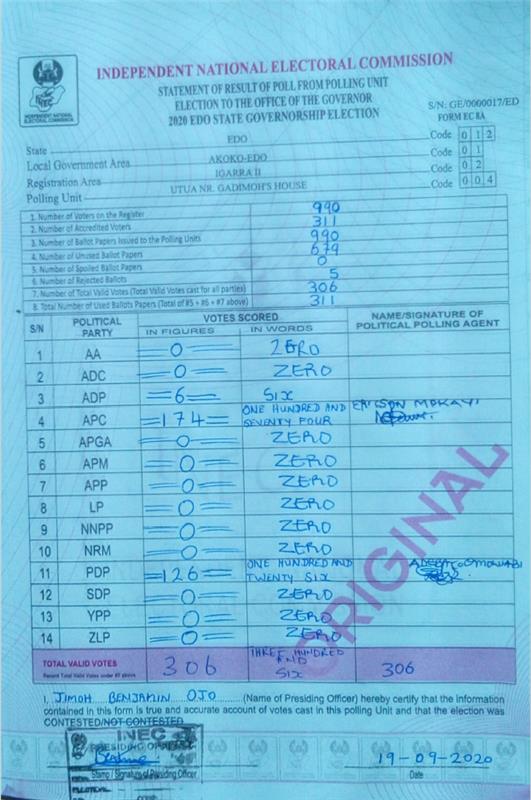 INDEPENDENT NATIONAL ELECTORAL COMMISSION
STATEMENT OF RESULT OF POLL FROM POLLING UNIT
ELECTION TO THE OFFICE OF THE GOVERNOR
2020 EDO STATE GOVERNORSHIP ELECTION
INDEPENDENT NATIONAL
ELECTORAL COMMISSION
S/N: GE/0000017/ED
FORM EC 8A
State EDO Code 0 1 2
Local Government Area AKOKO-EDO Code 0 1
Registration Area IGARRA II Code 0 2
Polling Unit UTUA NR. GADIMOH'S HOUSE Code 0 0 4
1. Number of Voters on the Register 990
2. Number of Accredited Voters 311
3. Number of Ballot Papers Issued to the Polling Units 990
4. Number of Unused Ballot Papers 679
5. Number of Spoiled Ballot Papers 0
6. Number of Rejected Ballots 5
7. Number of Total Valid Votes (Total Valid Votes cast for all parties) 306
8. Total Number of Used Ballots Papers (Total of #5 + #6 + #7 above) 311
S/N POLITICAL PARTY VOTES SCORED NAME/SIGNATURE OF POLITICAL POLLING AGENT
IN FIGURES IN WORDS
1 AA 0 ZERO
2 ADC 0 ZERO
3 ADP 6 SIX
4 APC 174 ONE HUNDRED AND SEVENTY FOUR
5 APGA 0 ZERO
6 APM 0 ZERO
7 APP 0 ZERO
8 LP 0 ZERO
9 NNPP 0 ZERO
10 NRM 0 ZERO
11 PDP 126 ONE HUNDRED AND TWENTY SIX
12 SDP 0 ZERO
13 YPP 0 ZERO
14 ZLP 0 ZERO
ORIGINAL
TOTAL VALID VOTES 306 THREE HUNDRED AND SIX 306
Record Total Valid Votes under #7 above
I, JIMOH BENJAMIN OJO (Name of Presiding Officer) hereby certify that the information
contained in this form is true and accurate account of votes cast in this polling Unit and that the election was
CONTESTED/NOT CONTESTED
INEC
PRESIDING OFFICER
Stamp / Signature of Presiding Officer
19-09-2020
Date